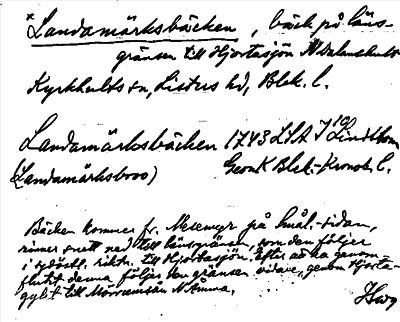 *Landamärksbäcken, bäck på läns-
gränsen till Hjortasjön N Dalanshult
Kyrkhults sn, Listers hd, Blek. l.
Landamärksbäcken 1743 LSA J 19
(Landamärksboo) GeonK Blek.-Kronob. l.
Bäcken kommer fr. Mesemyr på Smål-sidan,
rinner snett ned till länsgränsen, som den följer
i sydöstl. riktn. till Hjortasjön. Efter att ha genom-
flutit denna följer den gränsen vidare, genom Hjorta-
gylet till Mörrumsån N Åmma.